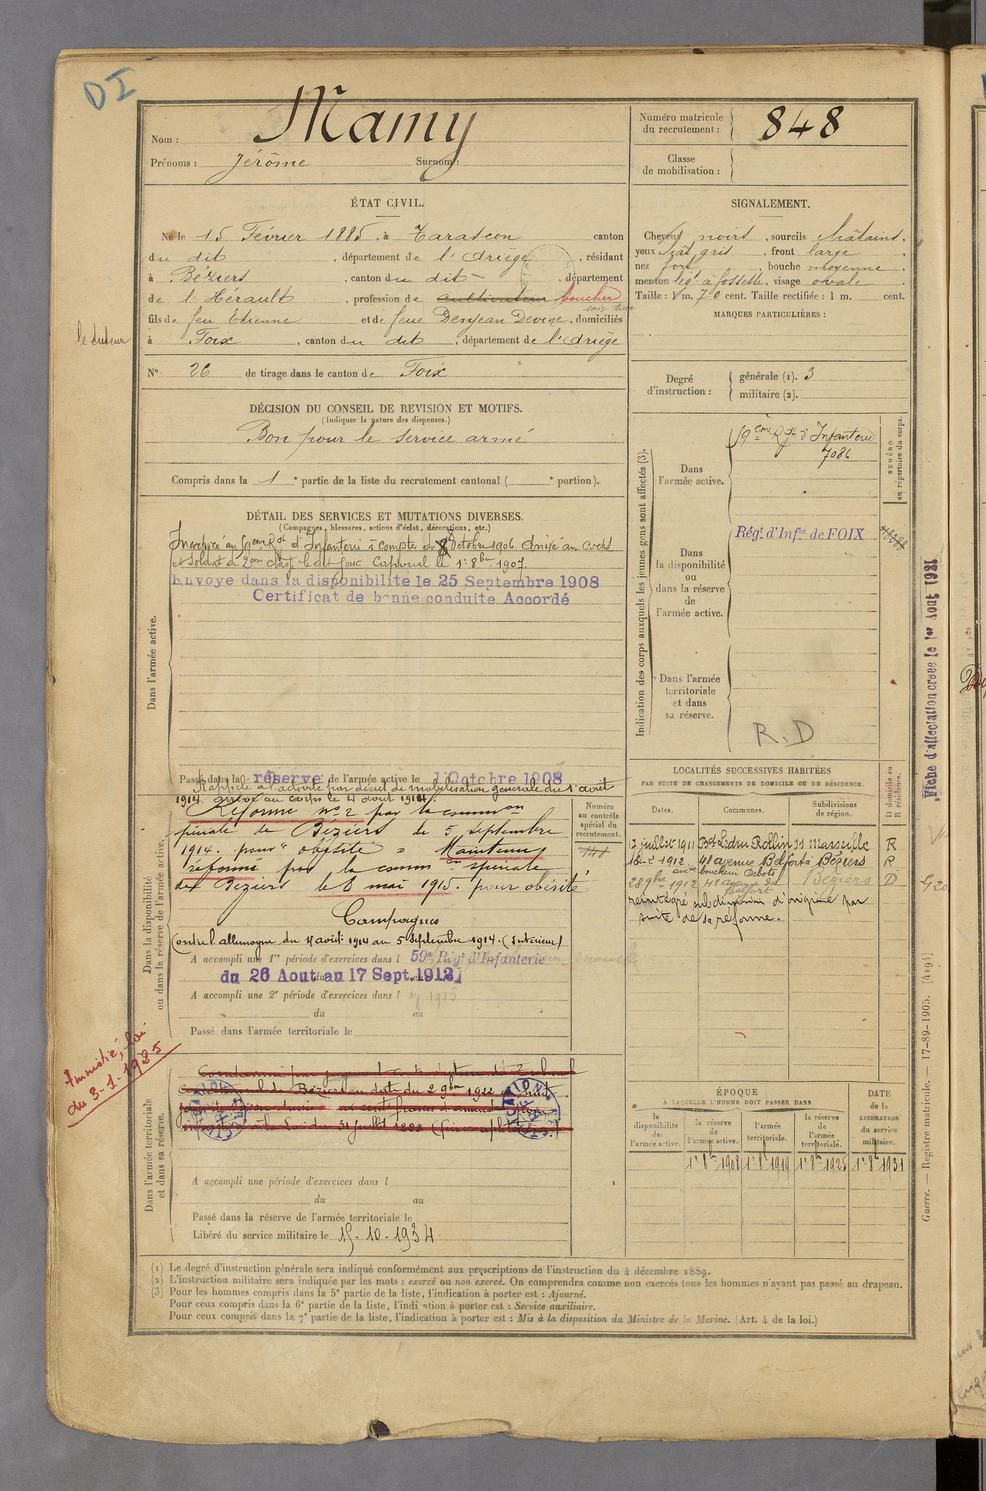 DI
Nom : Mamy
Prénoms : Jérôme Surnom :
Numéro matricule du recrutement : 848
Classe de mobilisation :
ÉTAT CIVIL.
Né le 15 Février 1885, à Tarascon canton
du dit, département de l'Ariège, résidant
à Béziers, canton du dit, département
de l'Hérault, profession de cultivateur boucher
fils de feu Etienne et de feue Denjean Devine, domiciliés
le tuteur
à Foix, canton du dit, département de l'Ariège
N° 26 de tirage dans le canton de Foix
SIGNALEMENT.
Cheveux noirs, sourcils châtains.
yeux chât gris, front large
nez fort, bouche moyenne
menton lég' à fossette, visage ovale
Taille : 1 m. 70 cent. Taille rectifiée : 1 m. cent.
MARQUES PARTICULIÈRES :
Degré d'instruction : générale (1). 3
militaire (2).
DÉCISION DU CONSEIL DE REVISION ET MOTIFS.
(Indiquer la nature des dispenses.)
Bon pour le service armé
Compris dans la 1e partie de la liste du recrutement cantonal ( e portion).
DÉTAIL DES SERVICES ET MUTATIONS DIVERSES.
(Campagnes, blessures, actions d'éclat, décorations, etc.)
Dans l'armée active.
Incorporé au 59eme Rgt d'Infanterie à compter du 8 Octobre 1906. Arrivé au corps
et soldat de 2eme classe le dit jour. Caporal le 1er 8bre 1907.
Envoyé dans la disponibilité le 25 Septembre 1908
Certificat de bonne conduite Accordé
Passé dans la réserve de l'armée active le 1 Octobre 1908
Dans la disponibilité ou dans la réserve de l'armée active.
Rappelé à l'activité par décret de mobilisation générale du 1er août
1914. arrivé au corps le 4 août 1914.
Réformé n° 2 par la common
spéciale de Béziers du 5 septembre
1914. pour "obésité" Maintenu
réformé par la common spéciale
de Béziers le 8 mai 1915. pour obésité
Campagnes
Contre l'allemagne du 4 août 1914 au 5 septembre 1914. (Intérieur)
A accompli une 1re période d'exercices dans l 59e Régt d'Infanterie
du 26 Aout au 17 Sept. 1912
A accompli une 2e période d'exercices dans l
du au
Passé dans l'armée territoriale le
Numéro au contrôle spécial du recrutement.
Amnistié, loi
du 3-1-1925
Dans l'armée territoriale et dans sa réserve.
Béziers en date du 2 9bre 1922
A accompli une période d'exercices dans l
du au
Passé dans la réserve de l'armée territoriale le
Libéré du service militaire le 15-10-1934
Indication des corps auxquels les jeunes gens sont affectés (3).
Dans l'armée active.
59eme Rgt d'Infanterie
7086
NUMÉRO au répertoire du corps.
Dans la disponibilité ou dans la réserve de l'armée active.
Régt d'Infie de FOIX
Dans l'armée territoriale et dans sa réserve.
R.D
LOCALITÉS SUCCESSIVES HABITÉES
PAR SUITE DE CHANGEMENTS DE DOMICILE OU DE RÉSIDENCE.
Dates. Communes. Subdivisions de région. D domicile ou R résidence.
12 juillet 1911 Bd Ledru Rollin 11 Marseille R
1912 48 avenue Belfort à Béziers R
28 9bre 1912 41 avenue de Belfort Béziers D
réintégré subdivision d'origine par
suite de sa réforme.
ÉPOQUE
A LAQUELLE L'HOMME DOIT PASSER DANS
la disponibilité de l'armée active.
la réserve de l'armée active.
l'armée territoriale.
la réserve de l'armée territoriale.
DATE de la LIBÉRATION du service militaire.
1er 8bre 1908 1er 8bre 1919 1er 8bre 1925 1er 8bre 1931
Fiche d'affectation créée le 1er Aout 1921
Guerre. — Registre matricule. — 17-89-1905. [4191]
(1) Le degré d'instruction générale sera indiqué conformément aux prescriptions de l'instruction du 4 décembre 1889.
(2) L'instruction militaire sera indiquée par les mots : exercé ou non exercé. On comprendra comme non exercés tous les hommes n'ayant pas passé au drapeau.
(3) Pour les hommes compris dans la 5e partie de la liste, l'indication à porter est : Ajourné.
Pour ceux compris dans la 6e partie de la liste, l'indication à porter est : Service auxiliaire.
Pour ceux compris dans la 7e partie de la liste, l'indication à porter est : Mis à la disposition du Ministre de la Marine. (Art. 4 de la loi.)